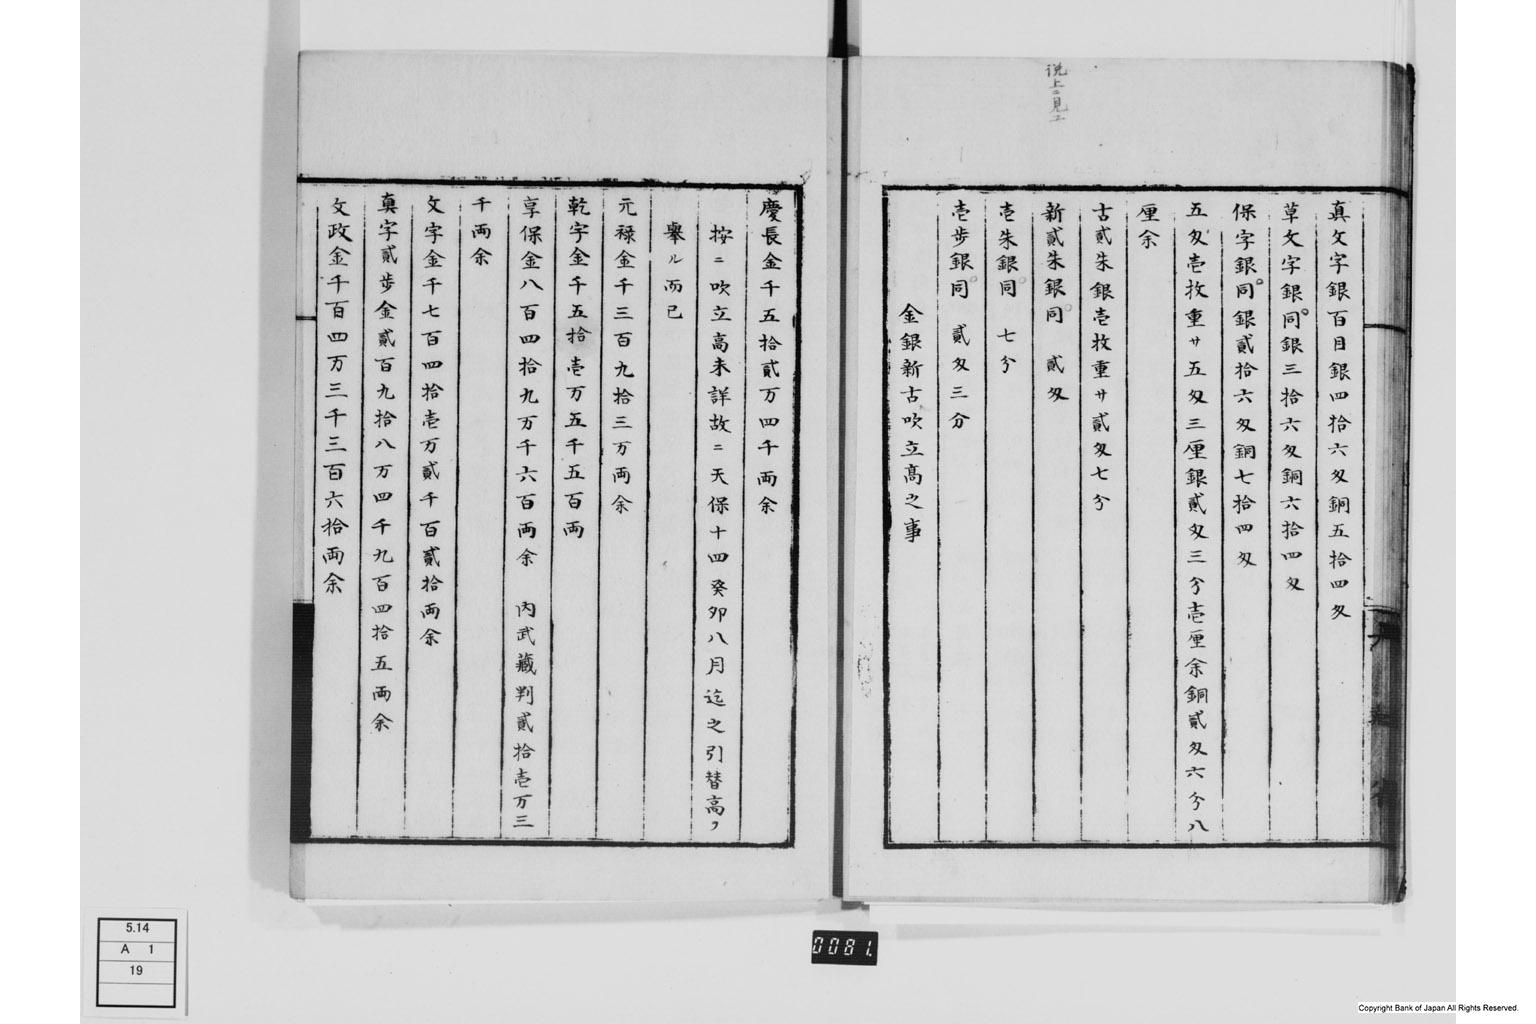 説上ニ見エ
真文字銀百目銀四拾六匁銅五拾四匁
草文字銀同銀三拾六匁銅六拾四匁
保字銀同銀貳拾六匁銅七拾四匁
五匁壱枚重サ五匁三厘銀貳匁三分壱厘余銅貳匁六分八
厘余
古貳朱銀壱枚重サ貳匁七分
新貳朱銀同 貳匁
壱朱銀同 七分
壱歩銀同 貳匁三分
金銀新古吹立高之事
慶長金千五拾貳万四千両余
按ニ吹立高未詳故ニ天保十四癸卯八月迄之引替高ヲ
擧ル而已
元禄金千三百九拾三万両余
乾字金千五拾壱万五千五百両
享保金八百四拾九万千六百両余 内武蔵判貳拾壱万三
千両余
文字金千七百四拾壱万貳千百貳拾両余
真字貳歩金貳百九拾八万四千九百四拾五両余
文政金千百四万三千三百六拾両余
0081.
5.14
A 1
19
Copyright Bank of Japan All Rights Reserved.